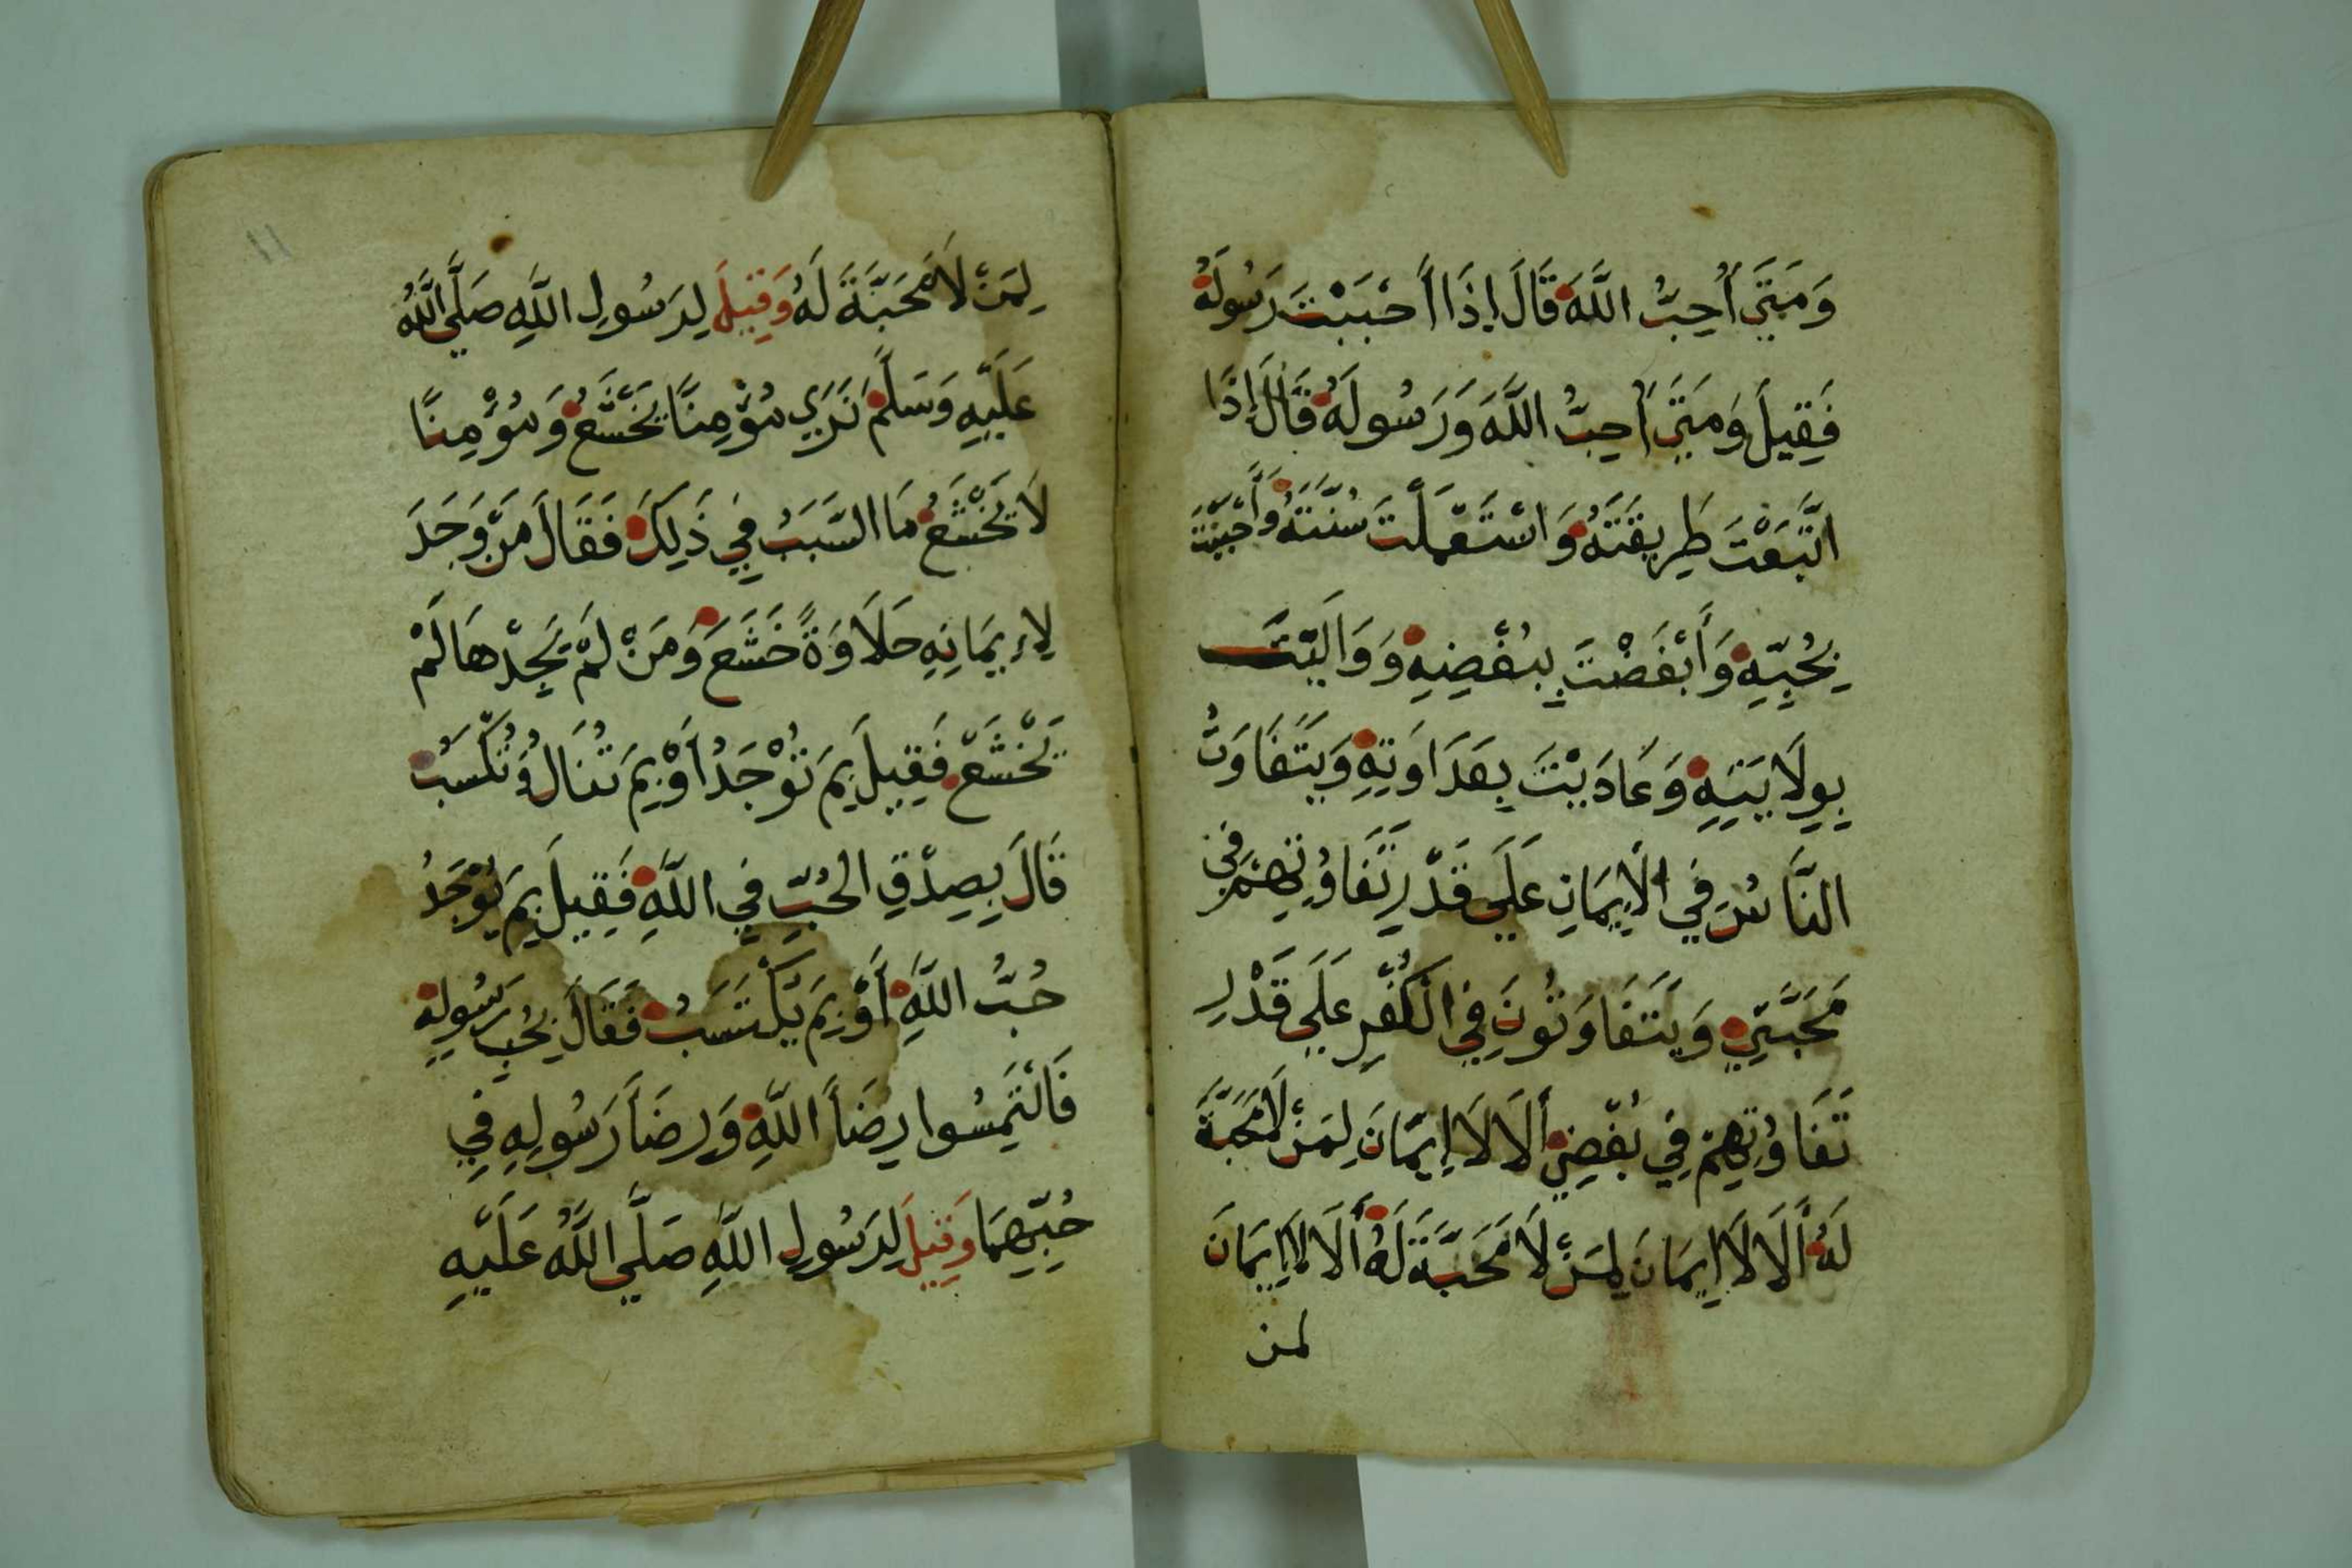 وَمَتَى أُحِبُّ اللَّهَ قَالَ إِذَا أَحْبَبْتَ رَسُولَهُ
فَقِيلَ وَمَتَى أُحِبُّ اللَّهَ وَرَسُولَهُ قَالَ إِذَا
اتَّبَعْتَ طَرِيقَتَهُ وَاسْتَعْمَلْتَ سُنَّتَهُ وَأَحْبَبْتَ
بِحُبِّهِ وَأَبْغَضْتَ بِبُغْضِهِ وَوَالَيْتَ
بِوِلَايَتِهِ وَعَادَيْتَ بِعَدَاوَتِهِ وَيَتَفَاوَتُ
النَّاسُ فِي الْإِيمَانِ عَلَى قَدْرِ تَفَاوُتِهِمْ فِي
مَحَبَّتِي وَيَتَفَاوَتُونَ فِي الْكُفْرِ عَلَى قَدْرِ
تَفَاوُتِهِمْ فِي بُغْضِي أَلَا لَا إِيمَانَ لِمَنْ لَا مَحَبَّةَ
لَهُ أَلَا لَا إِيمَانَ لِمَنْ لَا مَحَبَّةَ لَهُ أَلَا لَا إِيمَانَ
لمن
١١
لِمَنْ لَا مَحَبَّةَ لَهُ وَقِيلَ لِرَسُولِ اللَّهِ صَلَّى اللَّهُ
عَلَيْهِ وَسَلَّمَ نَرَى مُؤْمِنًا يَخْشَعُ وَمُؤْمِنًا
لَا يَخْشَعُ مَا السَّبَبُ فِي ذَلِكَ فَقَالَ مَنْ وَجَدَ
لِإِيمَانِهِ حَلَاوَةً خَشَعَ وَمَنْ لَمْ يَجِدْهَا لَمْ
يَخْشَعْ فَقِيلَ بِمَ تُوْجَدُ أَوْ بِمَ تُنَالُ وَتُكْسَبُ
قَالَ بِصِدْقِ الْحُبِّ فِي اللَّهِ فَقِيلَ بِمَ يُوْجَدُ
حُبُّ اللَّهِ أَوْ بِمَ يُكْتَسَبُ فَقَالَ بِحُبِّ رَسُولِهِ
فَالْتَمِسُوا رِضَاَ اللَّهِ وَرِضَاَ رَسُولِهِ فِي
حُبِّهِمَا وَقِيلَ لِرَسُولِ اللَّهِ صَلَّى اللَّهُ عَلَيْهِ